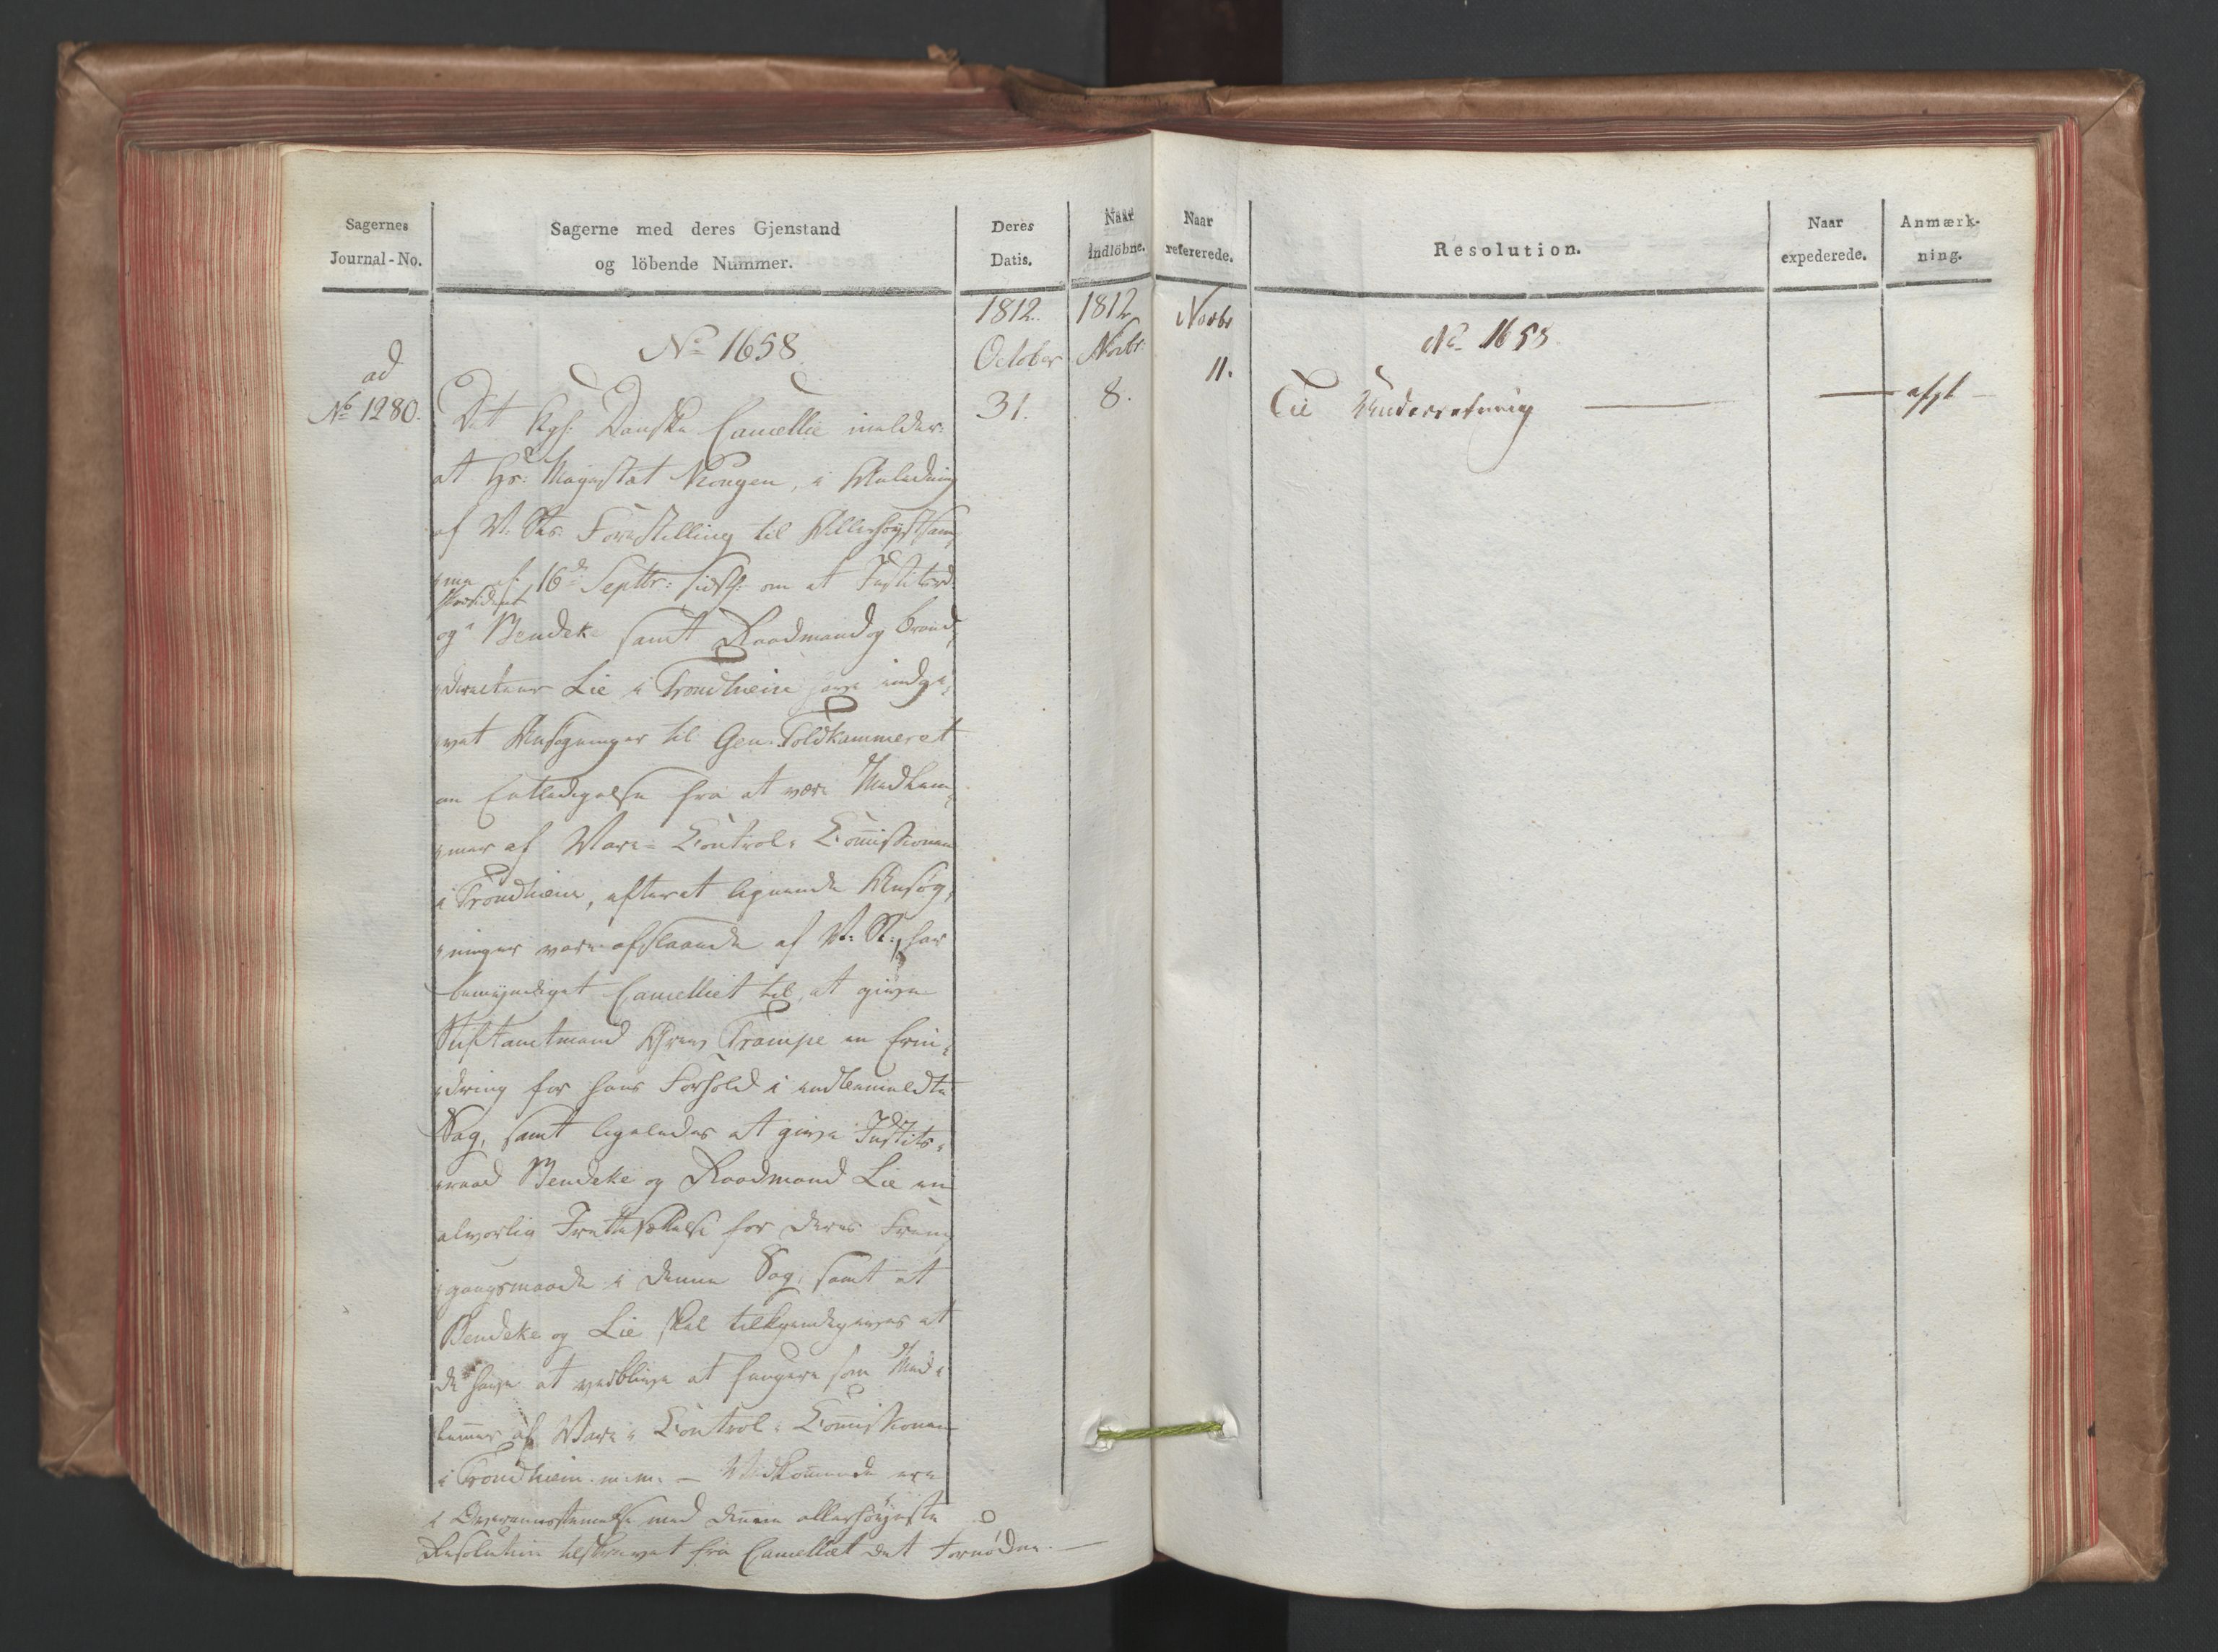 Sagernes
Journal-No.
Sagerne med deres Gjenstand
og löbende Nummer.
Deres
Datis.
Naar
indlöbne.
Naar
refererede.
Resolution.
Naar
expederede.
Anmærk-
ning.
ad
No 1280.
No 1658
Det Kgl: Danske Cancellie melder:
at Hs: Majestæt Kongen, i Anledning
af V. Cs. Forestilling til Allerhøystsam¸
¸me af: 16de Septbr: sidstl: om at Justitsrd
Præsident
og Bendeke samt Raadmand og Brand¸
¸directeur Lie i Trondhiem have indgi¸
¸vet Ansøgninger til Gen: Toldkammeret
om Entledigelse fra at være Medlem¸
¸mer af Vare- Control- Commissionen
i Trondhiem, efterat lignende Ansøg¸
¸ninger vare afslaaede af har
bemyndiget Cancelliet til, at give
Stiftamtmand Greve Trampe en Erin¸
¸dring for hans Forhold i
Sag, samt ligeledes at give Justits¸
¸raad Bendeke og Raadmand Lie en
alvorlig Irettesættelse for deres Frem¸
¸gangsmaade i denne Sag, samt at
Bendeke og Lie skal tilkiendegives at
de have at vedblive at fungere som Med¸
lemmer af Vare- Control- Commissionen
i Trondhiem m:m: — Vedkommende ere
i Overeensstemmelse med denne allerhøyeste
Resolution tilskrevet fra Cancelliet det Fornødne. —
1812.
October
31.
1812
Novbr:
8.
Novbr
11.
No 1658.
Til Underretning — — afgl —